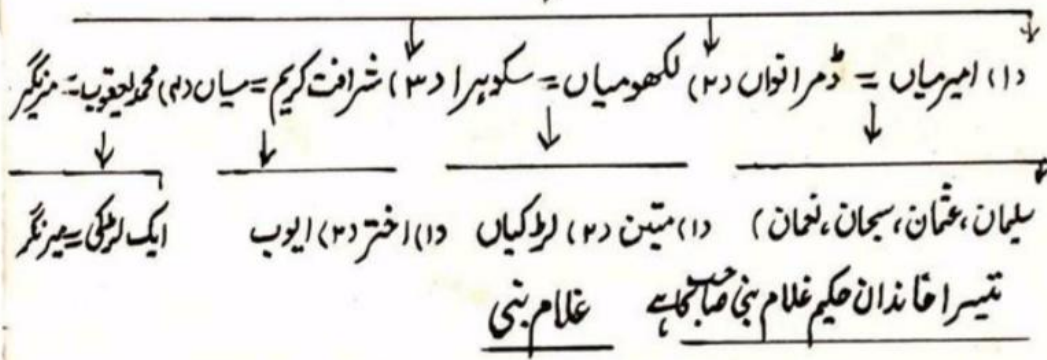 (۱) امیر میاں = ڈمرانواں (۲) لکھو میاں = سکوہرا (۳) شرافت کریم = میاں (۴) محمد یعقوب = مزنگر
سلیمان، عثمان، سبحان، نعمان ) (۱) متین (۲) لڑکیاں (۱) اختر (۲) ایوب ایک لڑکی = میرنگر
تیسرا خاندان حکیم غلام نبی صاحب کا ہے غلام نبی